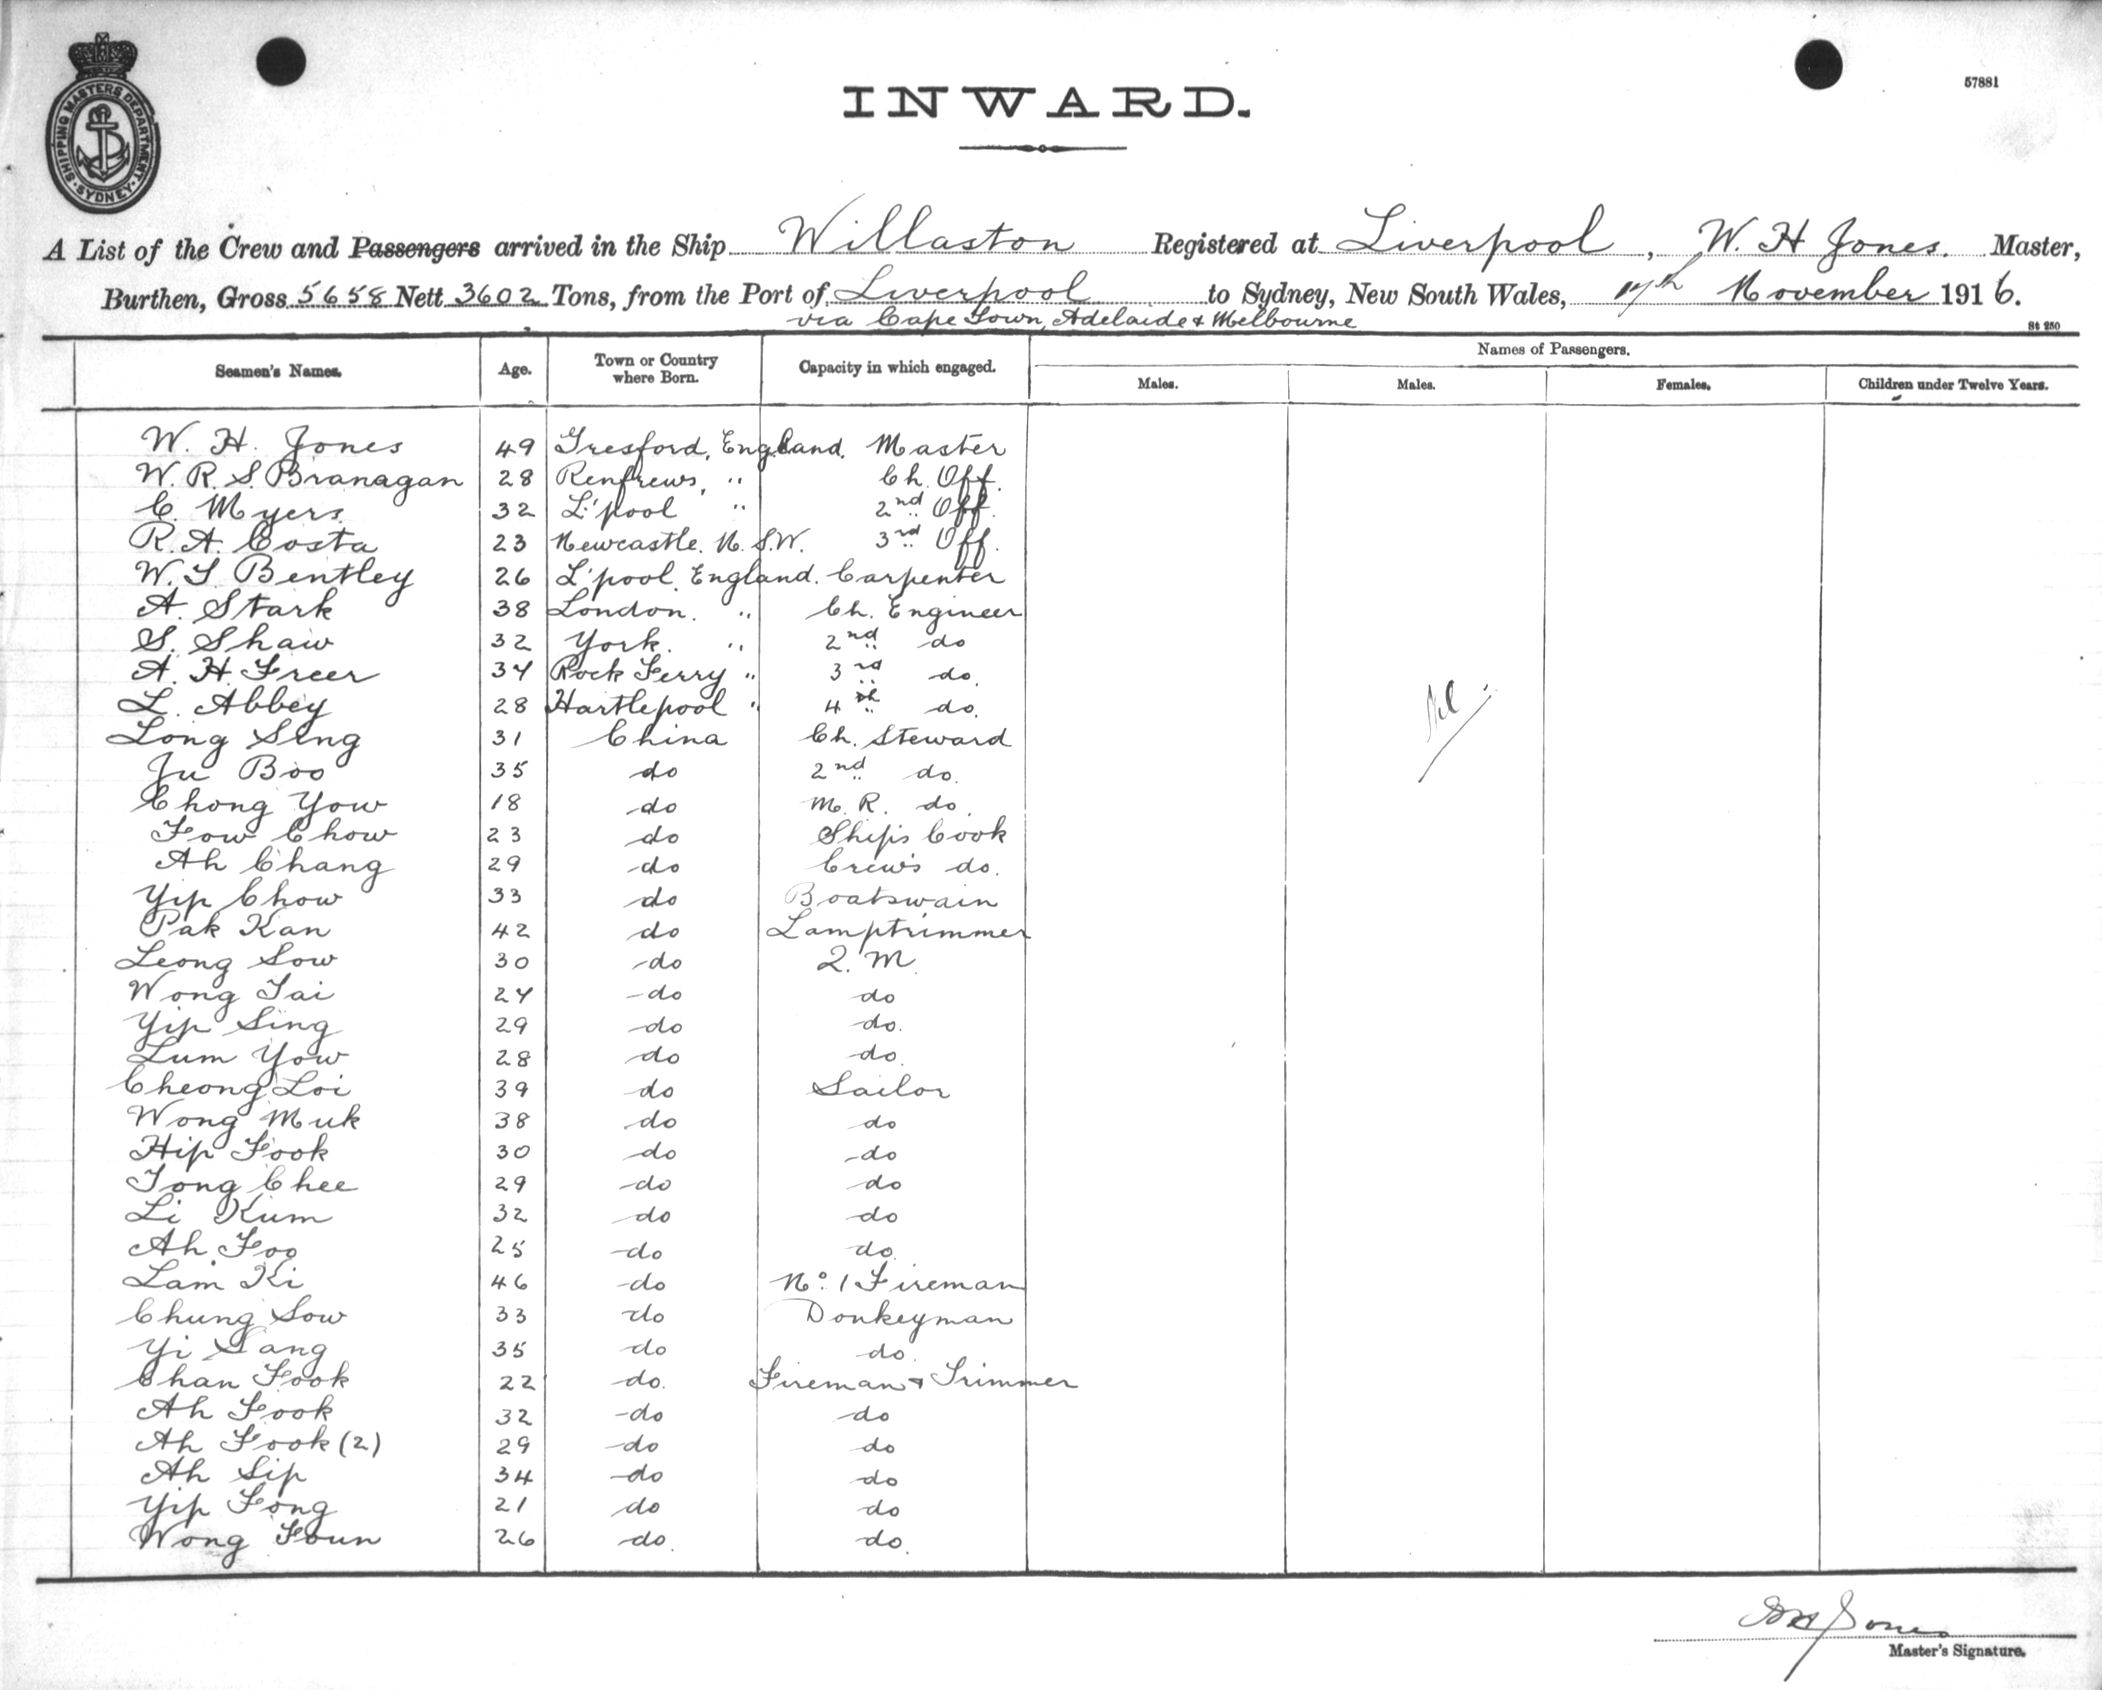 SHIPPING MASTERS DEPARTMENT
SYDNEY
57881
INWARD.
A List of the Crew and Passengers arrived in the Ship Willaston Registered at Liverpool, W. H Jones. Master,
Burthen, Gross 5658 Nett 3602 Tons, from the Port of Liverpool to Sydney, New South Wales, November 1916.
via Cape Town, Adelaide & Melbourne
St 250
Seamen's Names. Age. Town or Country where Born. Capacity in which engaged. Names of Passengers.
Males. Males. Females. Children under Twelve Years.
W. H. Jones 49 Gresford, England. Master
W. R. S. Branagan 28 Renfrews, " Ch. Off.
C. Myers 32 L'pool " 2nd Off.
R. A. Costa 23 Newcastle. N. S.W. 3rd Off.
W. T. Bentley 26 L'pool. England. Carpenter
A. Stark 38 London. " Ch. Engineer
S. Shaw 32 York. " 2nd do
A. H. Freer 34 Rock Ferry " 3rd do.
L. Abbey 28 Hartlepool " 4th do.
Long Sing 31 China Ch. Steward
Ju Boo 35 do 2nd do.
Chong Yow 18 do M. R. do.
Fow Chow 23 do Ship's Cook
Ah Chang 29 do Crew's do.
Yip Chow 33 do Boatswain
Pak Kan 42 do Lamptrimmer
Leong Sow 30 do Q. M
Wong Tai 24 do do
Yip Sing 29 do do.
Lum Yow 28 do do.
Cheong Loi 39 do Sailor
Wong Muk 38 do do
Hip Fook 30 do do
Tong Chee 29 do do
Li Kum 32 do do
Ah Foo 25 do do.
Lam Ki 46 do No. 1 Fireman
Chung Sow 33 do Donkeyman
Yi Sang 35 do do.
Chan Fook 22 do. Fireman & Trimmer
Ah Fook 32 do do
Ah Fook (2) 29 do do
Ah Sip 34 do do
Yip Fong 21 do do
Wong Foun 26 do. do.
Nil
W H Jones
Master's Signature.